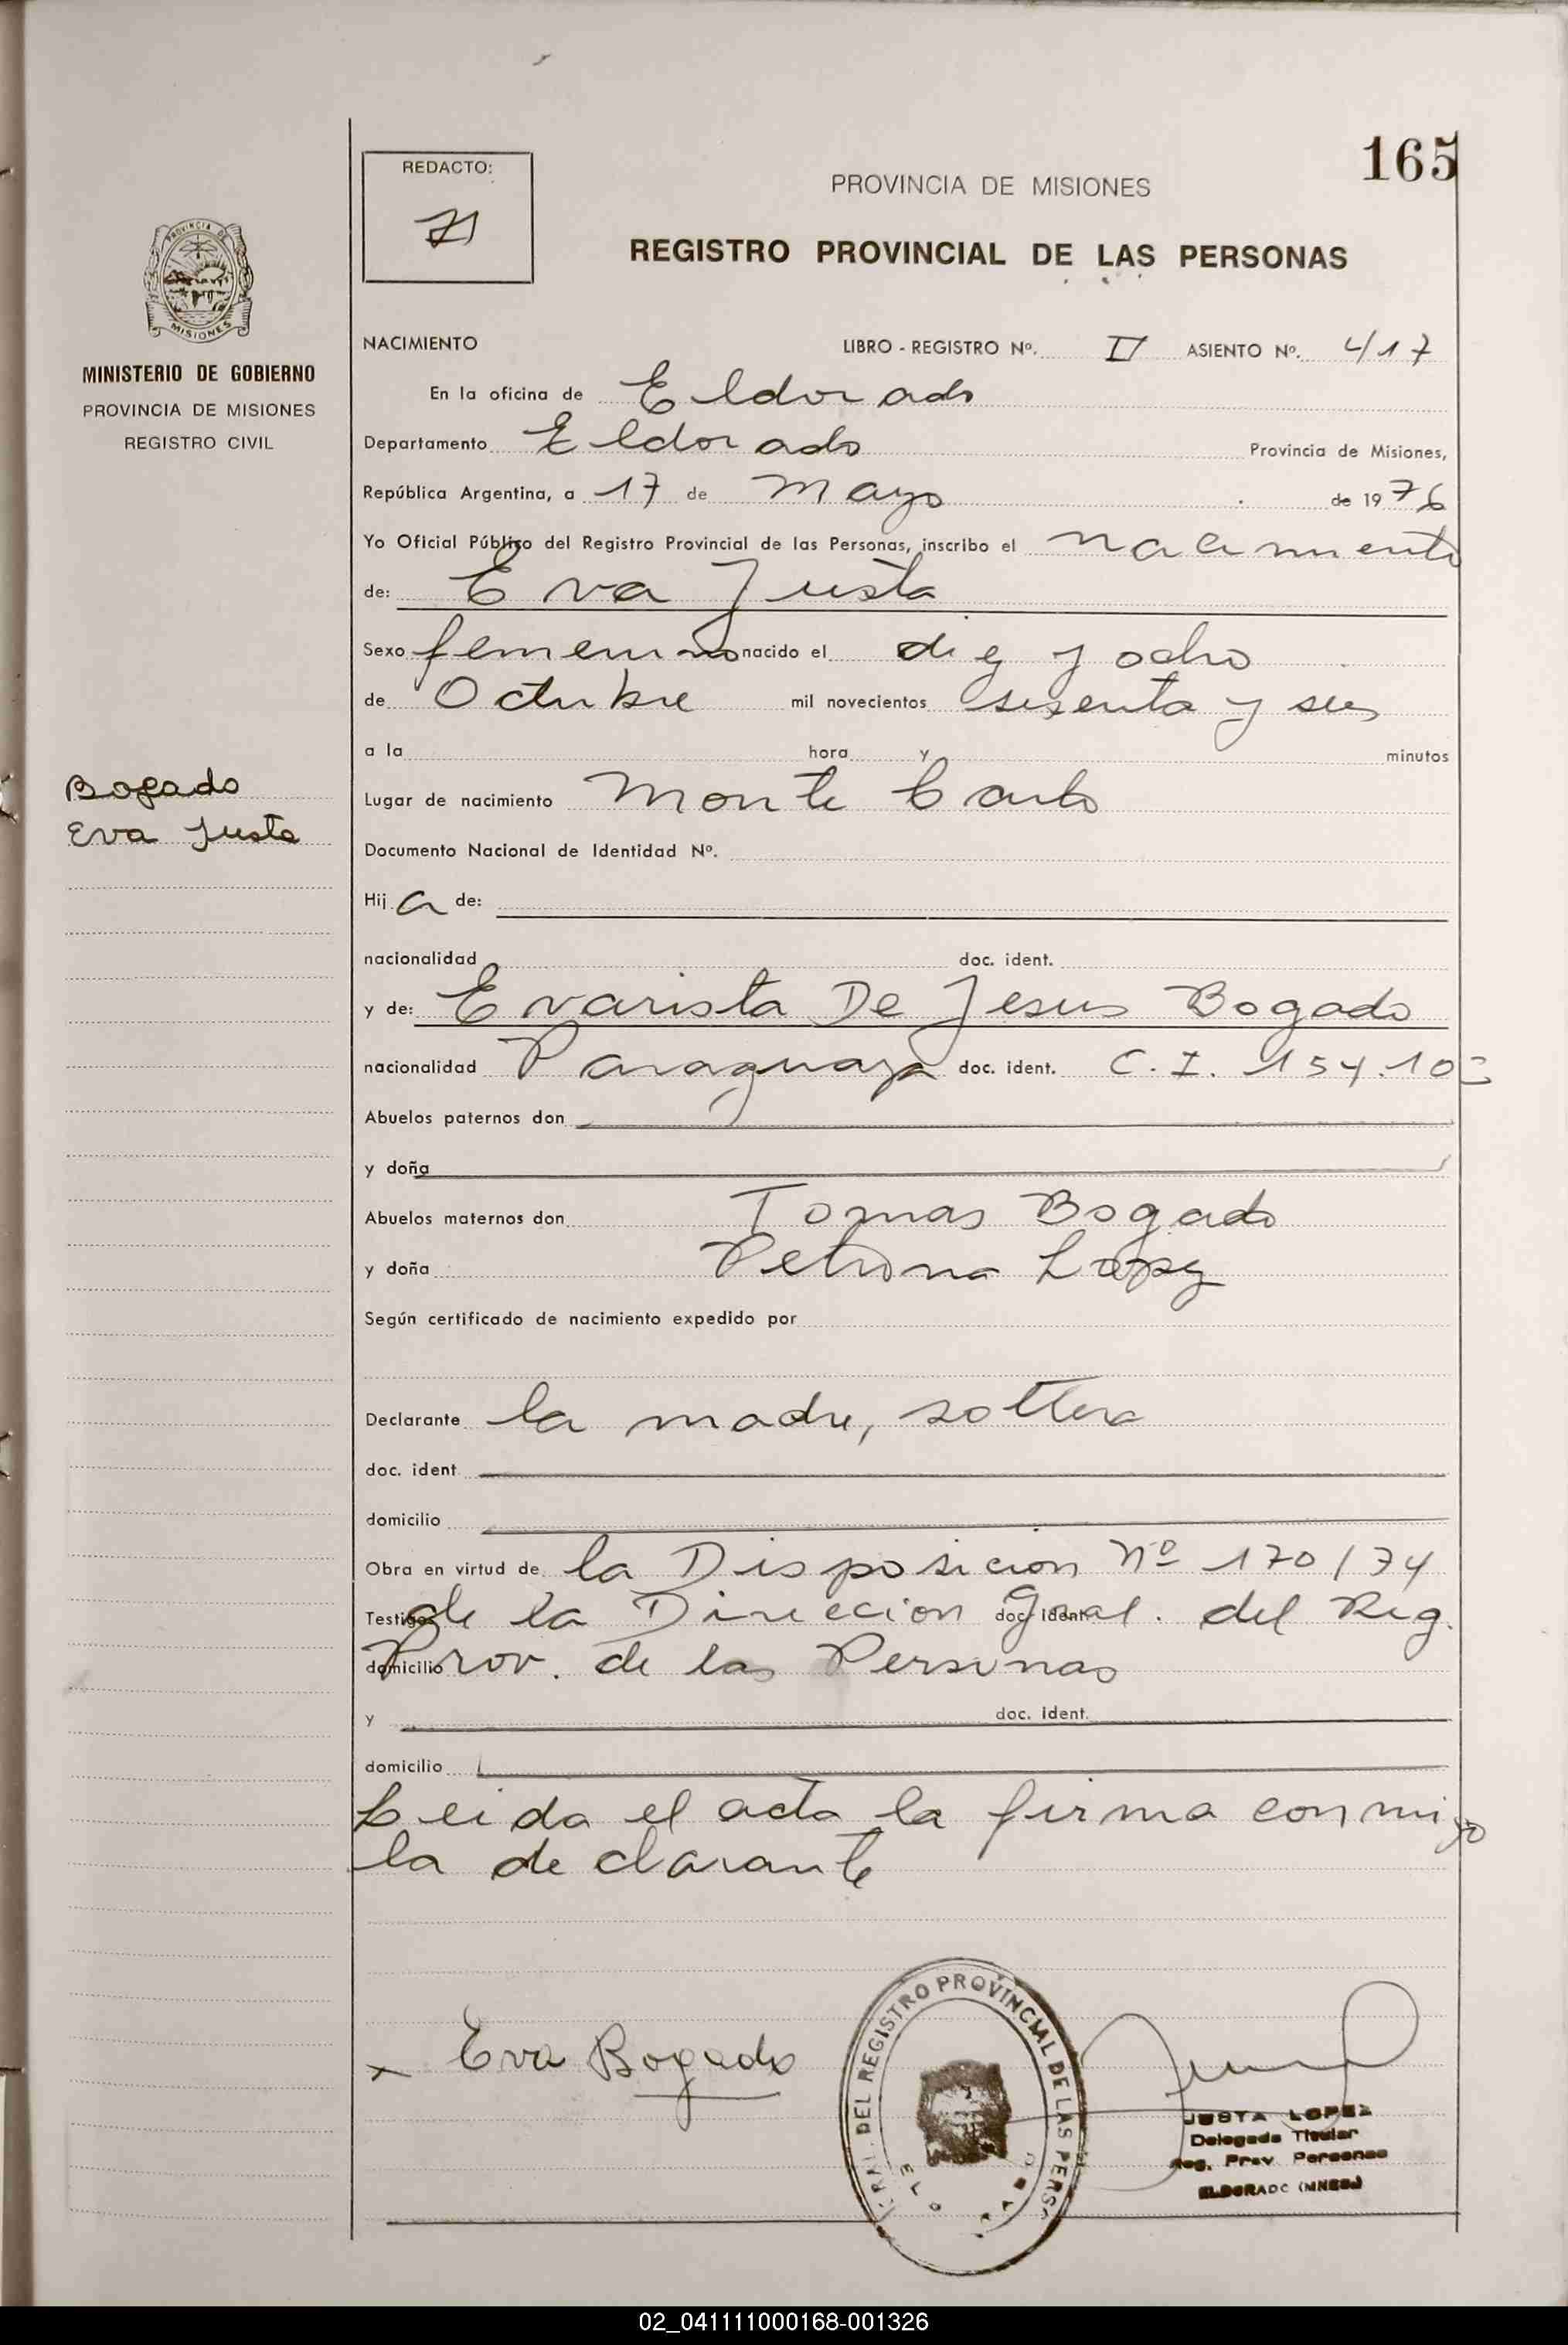 165
REDACTO:
PROVINCIA DE MISIONES
REGISTRO PROVINCIAL DE LAS PERSONAS
MINISTERIO DE GOBIERNO
PROVINCIA DE MISIONES
REGISTRO CIVIL
NACIMIENTO LIBRO - REGISTRO Nº. II ASIENTO Nº. 417
En la oficina de Eldorado
Departamento Eldorado Provincia de Misiones,
República Argentina, a 17 de Mayo de 1976
Yo Oficial Público del Registro Provincial de las Personas, inscribo el nacimiento
de: Eva Justa
Sexo femenino nacido el diez y ocho
de Octubre mil novecientos sesenta y seis
a la hora y minutos
Bogado
Eva Justa
Lugar de nacimiento Monte Carlo
Documento Nacional de Identidad Nº.
Hija de:
nacionalidad doc. ident.
y de: Evarista De Jesus Bogado
nacionalidad Paraguaya doc. ident. C.I. 154.10
Abuelos paternos don
y doña
Abuelos maternos don Tomas Bogado
y doña Petrona Lopez
Según certificado de nacimiento expedido por
Declarante la madre, soltera
doc. ident
domicilio
Obra en virtud de la Disposicion Nº 170/74
Testigos de la Direccion doc. ident. Gral. del Reg.
domicilio Prov. de las Personas
y doc. ident.
domicilio
Leida el acta la firma conmigo
la declarante
x Eva Bogado
DEL REGISTRO PROVINCIAL DE LAS PERS
JUSTA LOPEZ
Delegada Titular
Reg. Prov. Personas
ELDORADO (MNES)
02_041111000168-001326